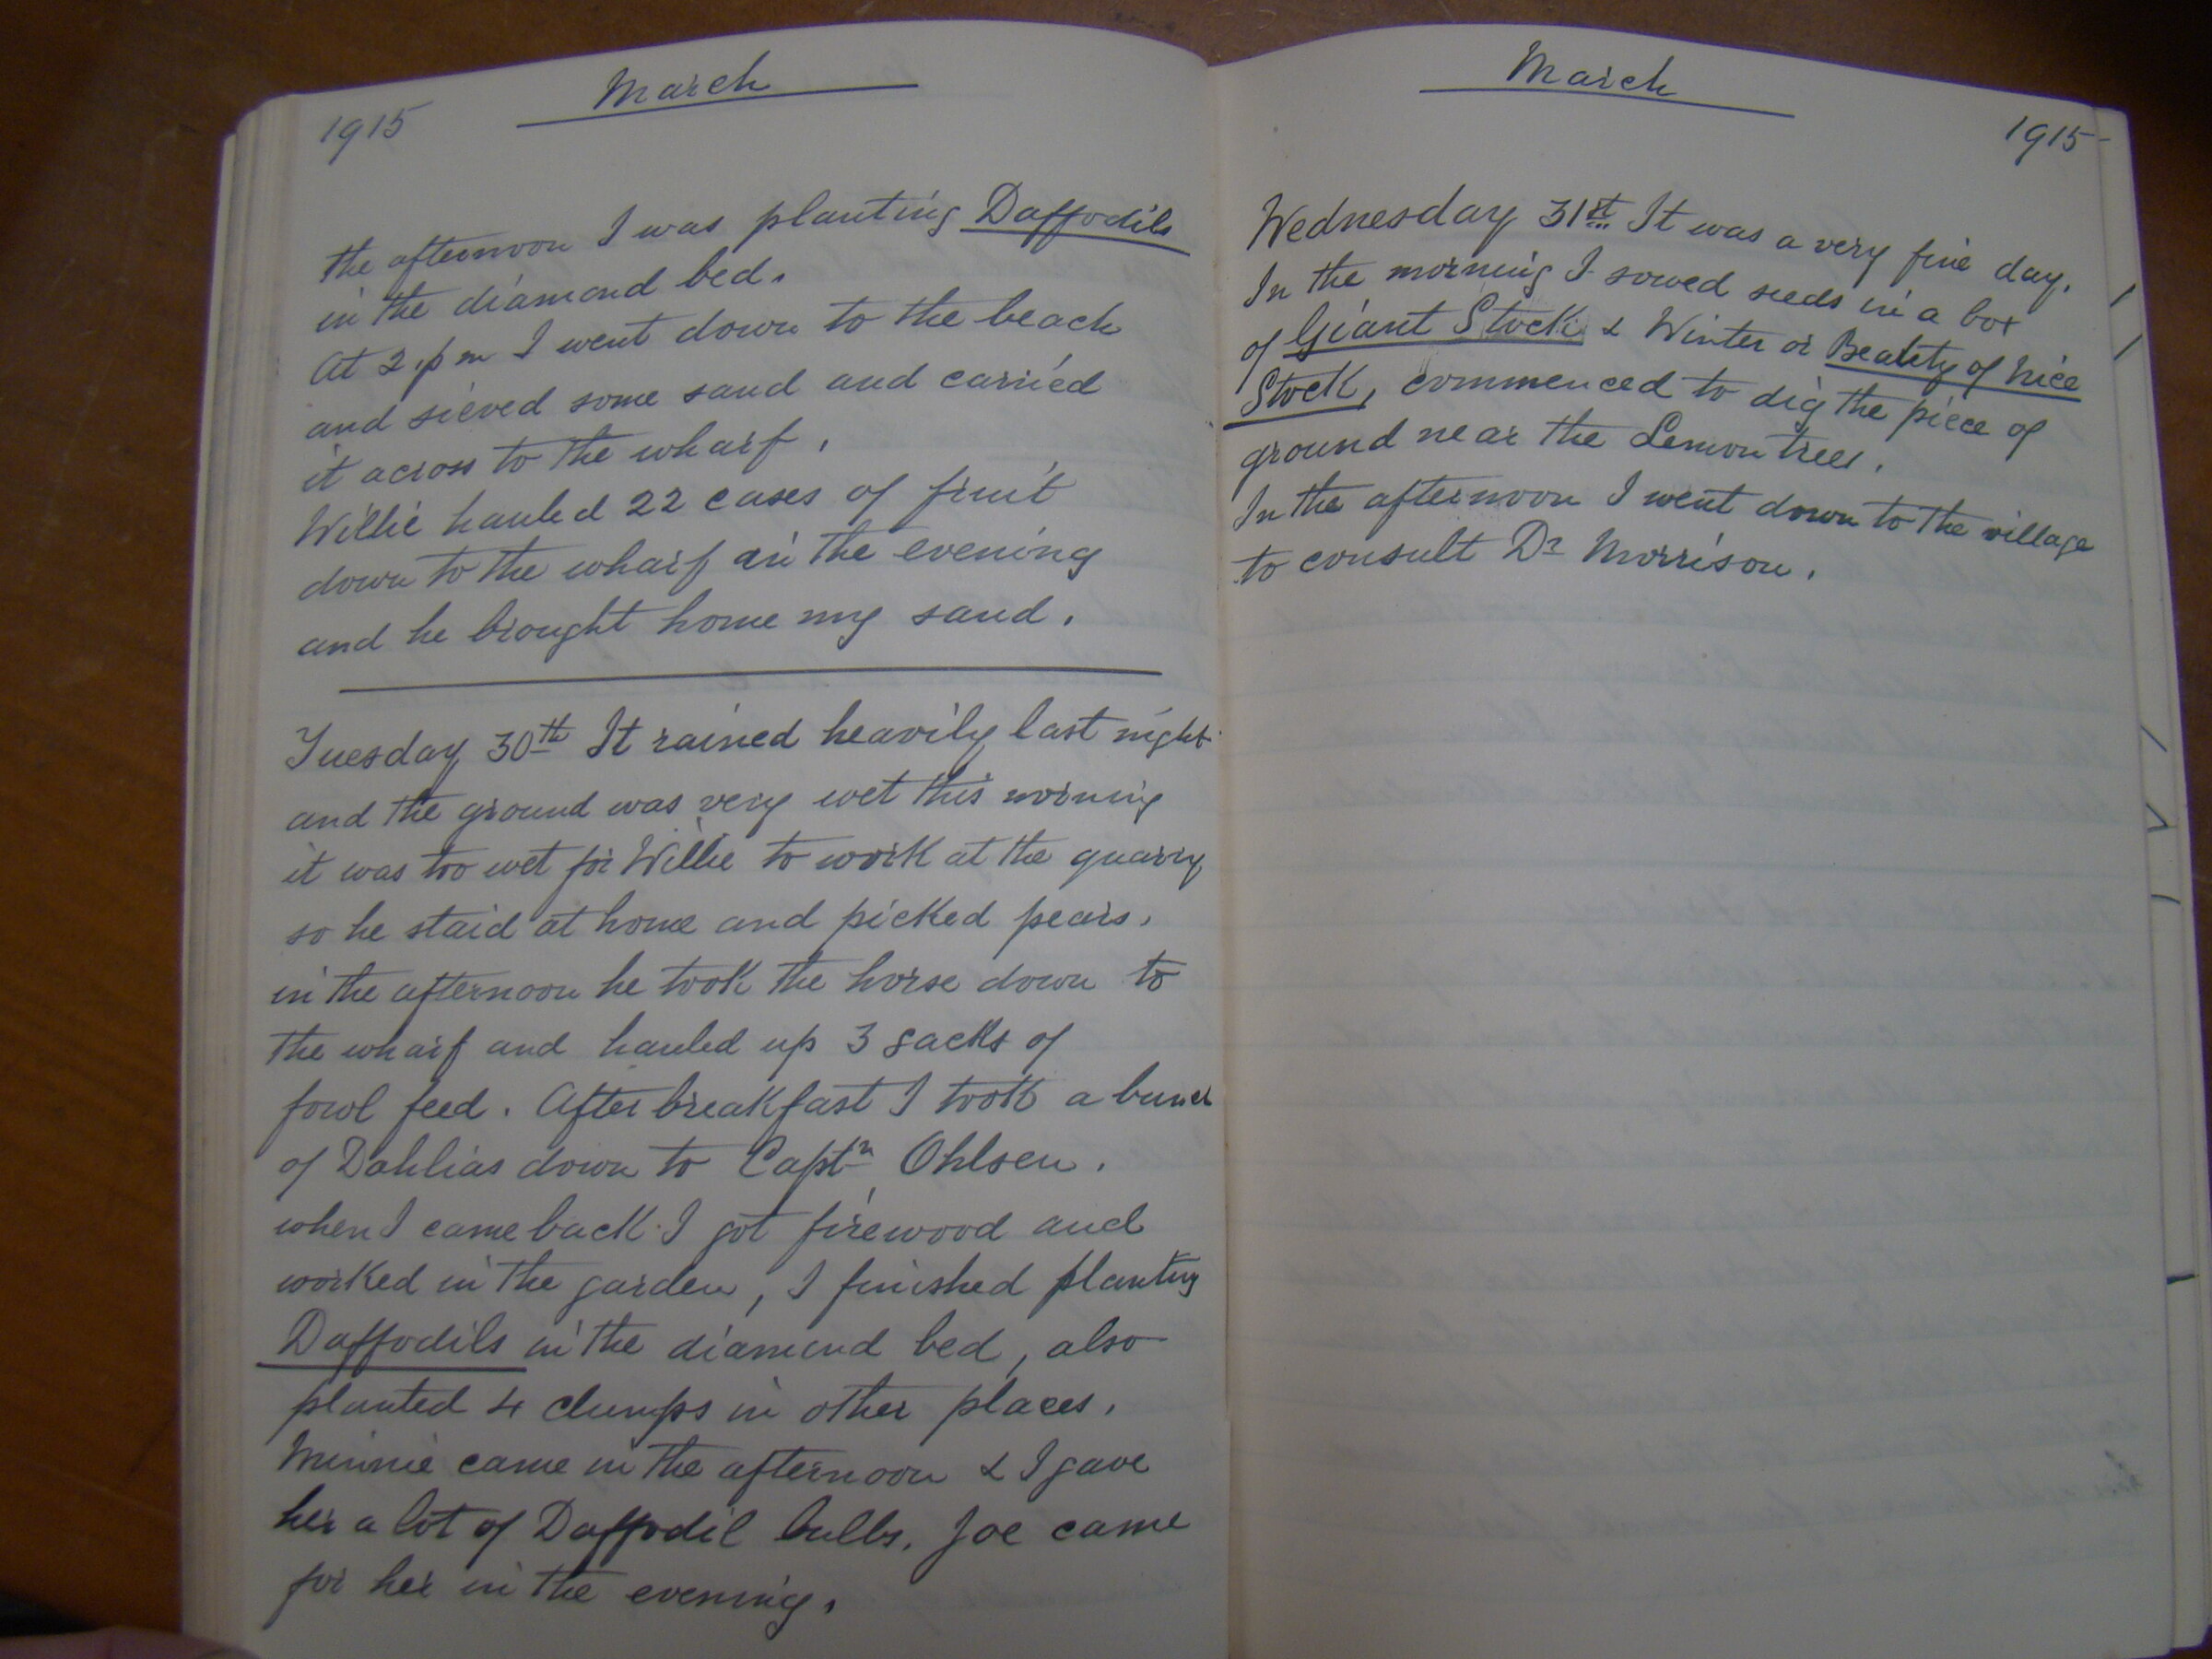 March
1915
the afternoon I was planting Daffodils
in the diamond bed.
At 2 pm I went down to the beach
and sieved some sand and carried
it across to the wharf.
Willie hauled 22 cases of fruit
down to the wharf in the evening
and he brought home my sand.
Tuesday 30th It rained heavily last night
and the ground was very wet this morning
it was too wet for Willie to work at the quarry
so he staid at home and picked pears.
in the afternoon he took the horse down to
the wharf and hauled up 3 sacks of
fowl feed. After breakfast I took a bunch
of Dahlias down to Captn Ohlsen.
when I came back I got firewood and
worked in the garden, I finished planting
Daffodils in the diamond bed, also
planted 4 clumps in other places.
Minnie came in the afternoon & I gave
her a lot of Daffodil bulbs. Joe came
for her in the evening.
March
1915
Wednesday 31st It was a very fine day.
In the morning I sowed seeds in a box
of Giant Stock & Winter or Beauty of Nice
Stock, commenced to dig the piece of
ground near the Lemon trees.
In the afternoon I went down to the village
to consult Dr Morrison.